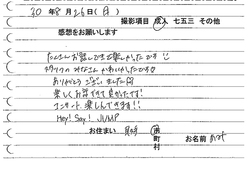 30年8月26日(日)
撮影項目 成人 七五三 その他
感想をお願いします
たくさんお話しできて楽しかったです!!
スタッフのみなさん かわいかったです♡
ありがとうございました
楽しくお話できて良かったです!
コンサート楽しんできます!!
Hey! Say! JUMP
お住まい 市町村 お名前